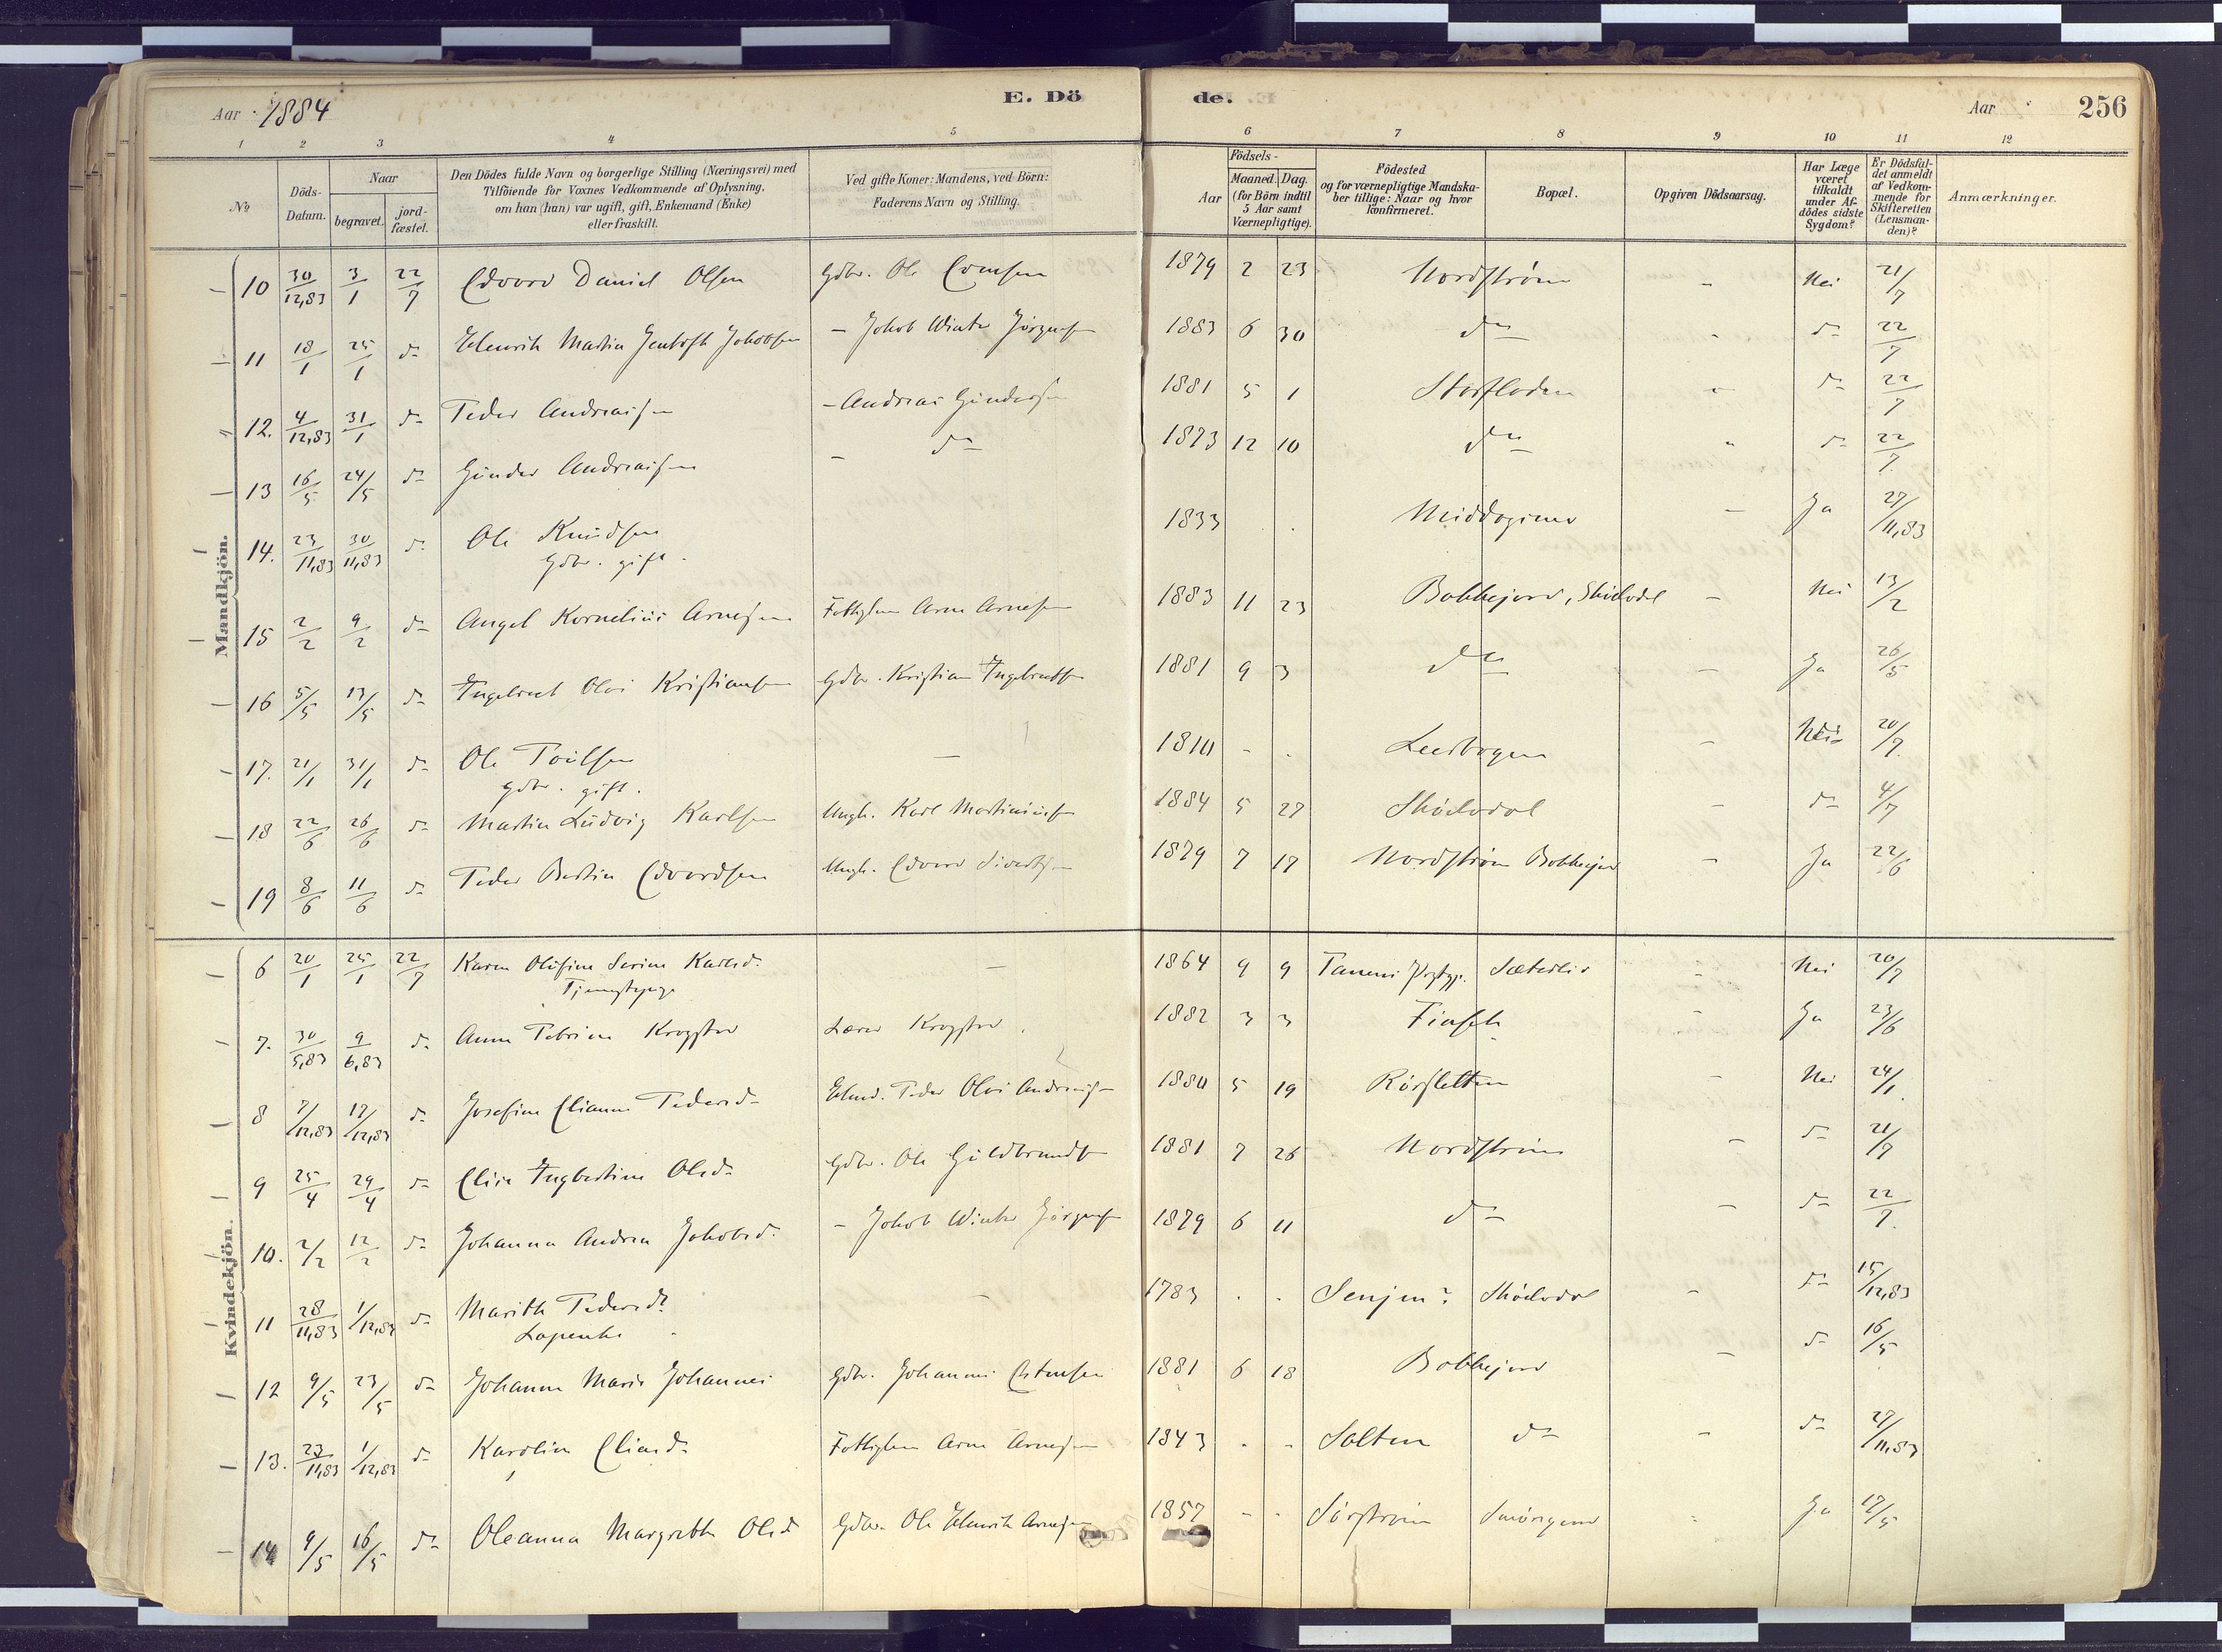 Aar 1884 E. Döde. Aar 256
1 2 3 4 5 6 7 8 9 10 11 12
No
Döds-Datum.
Naar
begravet.
jordfæstet.
Den Dödes fulde Navn og borgerlige Stilling (Næringsvei) med
Tilföiende for Voxnes Vedkommende af Oplysning,
om han (hun) var ugift, gift, Enkemand (Enke)
eller fraskilt.
Ved gifte Koner: Mandens, ved Börn:
Faderens Navn og Stilling.
Aar
Födsels-
Maaned. Dag.
(for Börn indtil
5 Aar samt
Værnepligtige).
Födested
og for værnepligtige Mandska-
ber tillige: Naar og hvor
konfirmeret.
Bopæl.
Opgiven Dödsaarsag.
Har Læge
været
tilkaldt
under Af-
dödes sidste
Sygdom?
Er Dödsfal-
det anmeldt
af Vedkom-
mende for
Skifteretten
(Lensman-
den)?
Anmærkninger.
Mandkjön.
10 30/12,83 3/1 22/7 Edvard Daniel Olsen Gdbr. Ole 1879 2 23 Nordstrøm - Nei 21/7
11 18/1 25/1 do Henrik Martin Jentoft Jakobsen - Jakob Winter Jørgensen 1883 6 30 do - do 22/7
12. 4/12,83 31/1 do Peder Andreassen - Andreas Gundersen 1881 5 1 Storfloden - do 22/7
13 16/5 24/5 do Gunder Andreassen - do 1873 12 10 do - do 22/7.
14. 23/11,83 30/11,83 do Ole Knudsen 1833 - Ja 27/11,83
Gdbr. gift.
15 2/2 9/2 do Angel Kornelius Arnesen Arne Arnesen 1883 11 23 - Nei 13/2
16 5/5 13/5 do Ingebret Olai Kristiansen Gdbr. Kristian Ingebretsen 1881 9 3 do - Ja 26/5
17. 21/1 31/1 do Ole Poulsen - 1810 - - - Nei 20/7.
Gdbr. gift.
18 22/6 26/6 do Martin Ludvig Karlsen Ungk. Karl Martiniussen 1884 5 27 - do 4/7
19 8/6 11/6 do Peder Bertin Edvardsen Ungk. Edvard Sivertsen 1879 7 17 Nordstrøm - Ja 22/6
Kvindekjön.
6 20/1 25/1 22/7 Karen Olufine Serine Karlsd. - 1864 9 9 - Nei 20/7
Tjenestepige
7. 30/5,83 9/6,83 do Anna Krogstad Lærer Krogstad 1882 3 3 - Ja 23/6
8 7/12,83 17/12,83 do Josefine Elianna Pedersd. Peder Olai Andreassen 1880 5 19 - Nei 24/1.
9 25/4 29/4 do Elise Ingbertine Olsd. Gdbr. Ole Guldbrandsen 1881 7 26 Nordstrøm - do 21/7
10. 2/2 12/2 do Johanna Andrea Jakobsd. - Jakob Winter Jørgensen 1879 6 11 do - do 22/7.
11 28/11,83 1/12,83 do Marith Pedersd. - 1783 . . Senjen? - do 15/12,83
Lapenke
12 9/5 23/5 do Johanna Marie Johannes Gdbr. Johannes 1881 6 18 - do 16/5
13. 23/11,83 1/12,83 do Karoline Eliasd. Arne Arnesen 1843 - - Salten do - do 27/11,83
14 9/5 16/5 do Oleanna Margrethe Olsd. Gdbr. Ole Henrik Arnesen 1857 - - Sørstrøm - Ja 17/5